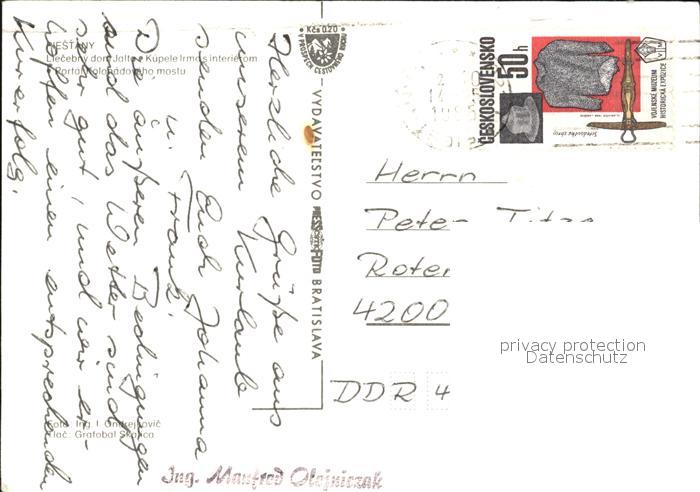 PIEŠŤANY
Liečebný dom Jalta a Kúpele Irma s interiérom
Portál Kolonádového mostu
Herzliche Grüße aus
unserem Kurlaub
senden Euch Johanna
u. Frank.
Die äußeren Bedingungen
und das Wetter sind
sehr gut, und wir er-
hoffen einen entsprechenden
Kurerfolg.
Foto: Ing. I. Ondrejkovič
Tlač: Grafobal Skalica
Kčs 0,20
V PROSPECH CESTOVNÉHO RUCHU
VYDAVATEĽSTVO PRESSFOTO BRATISLAVA
ČESKOSLOVENSKO
50 h
VOJENSKÉ MUZEUM
HISTORICKÁ EXPOZICE
Středověká zbroj
Herrn
Peter
4200
DDR 4
privacy protection
Datenschutz
Ing. Manfred Olejniczak